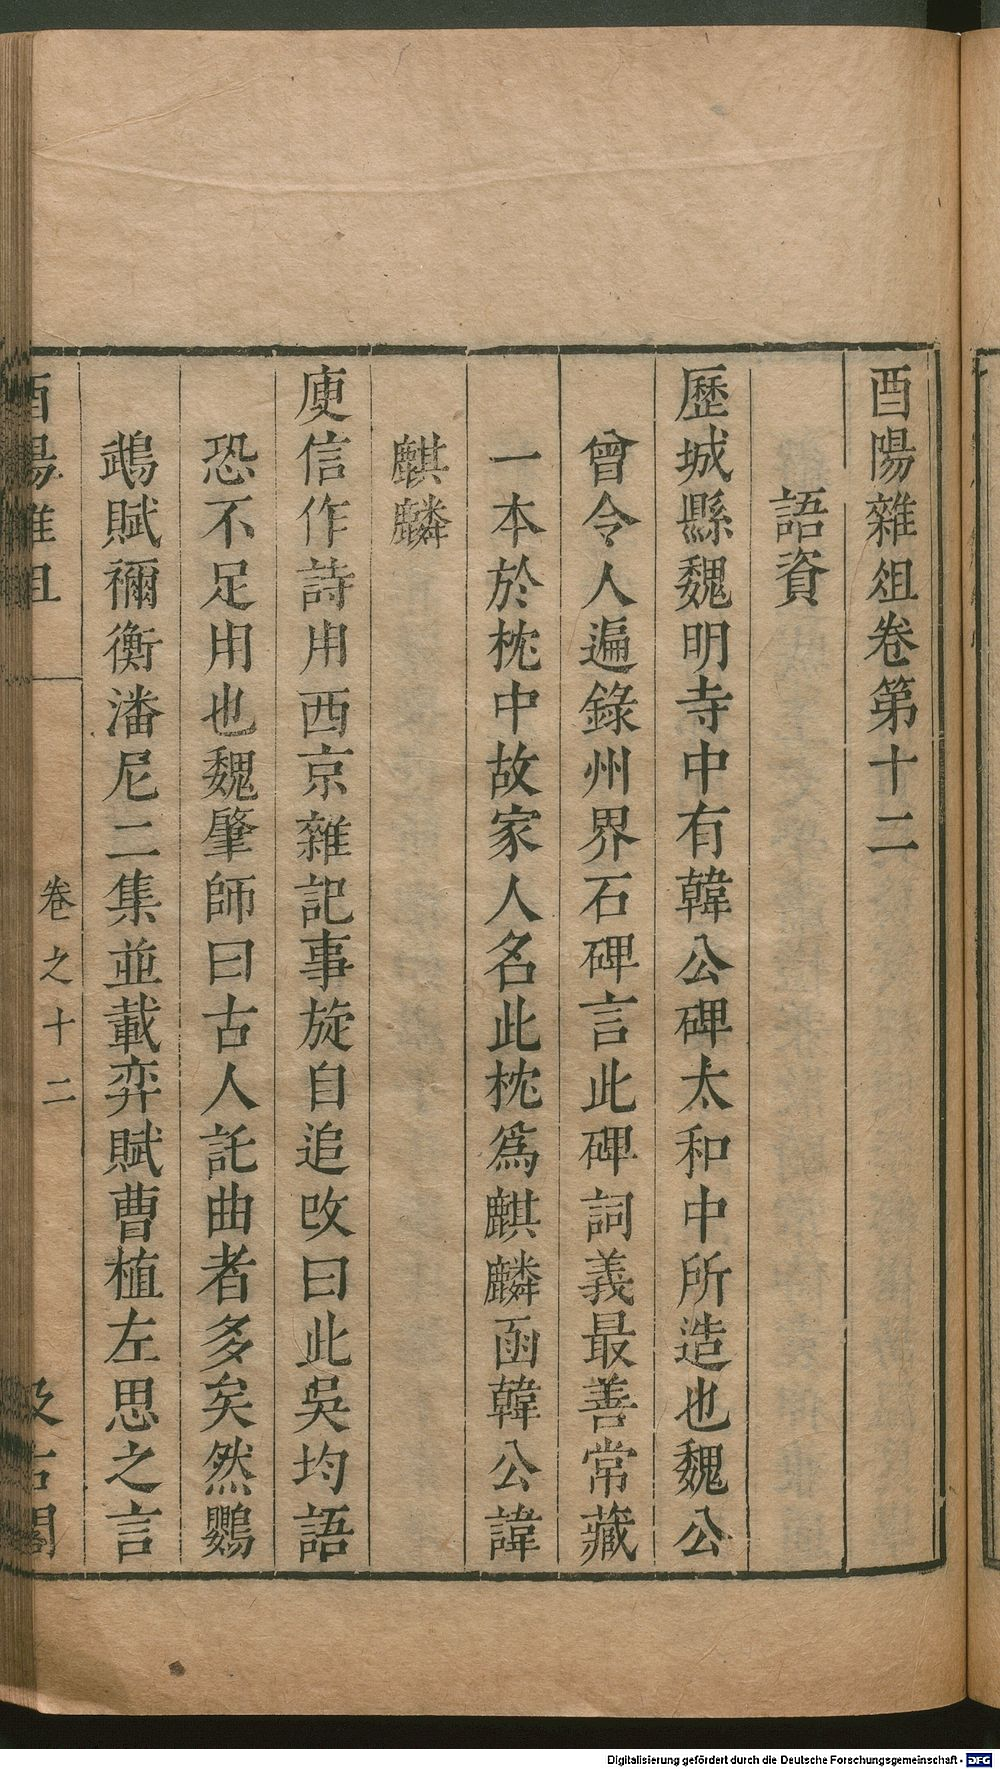 酉陽雜俎卷第十二
語資
歷城縣魏明寺中有韓公碑太和中所造也魏公
曾令人遍錄州界石碑言此碑詞義最善常藏
一本於枕中故家人名此枕為麒麟函韓公諱
麒麟
庾信作詩用西京雜記事旋自追改曰此吳均語
恐不足用也魏肇師曰古人託曲者多矣然鸚
鵡賦禰衡潘尼二集並載弈賦曹植左思之言
酉陽雜俎
卷之十二
汲古閣
Digitalisierung gefördert durch die Deutsche Forschungsgemeinschaft - DFG